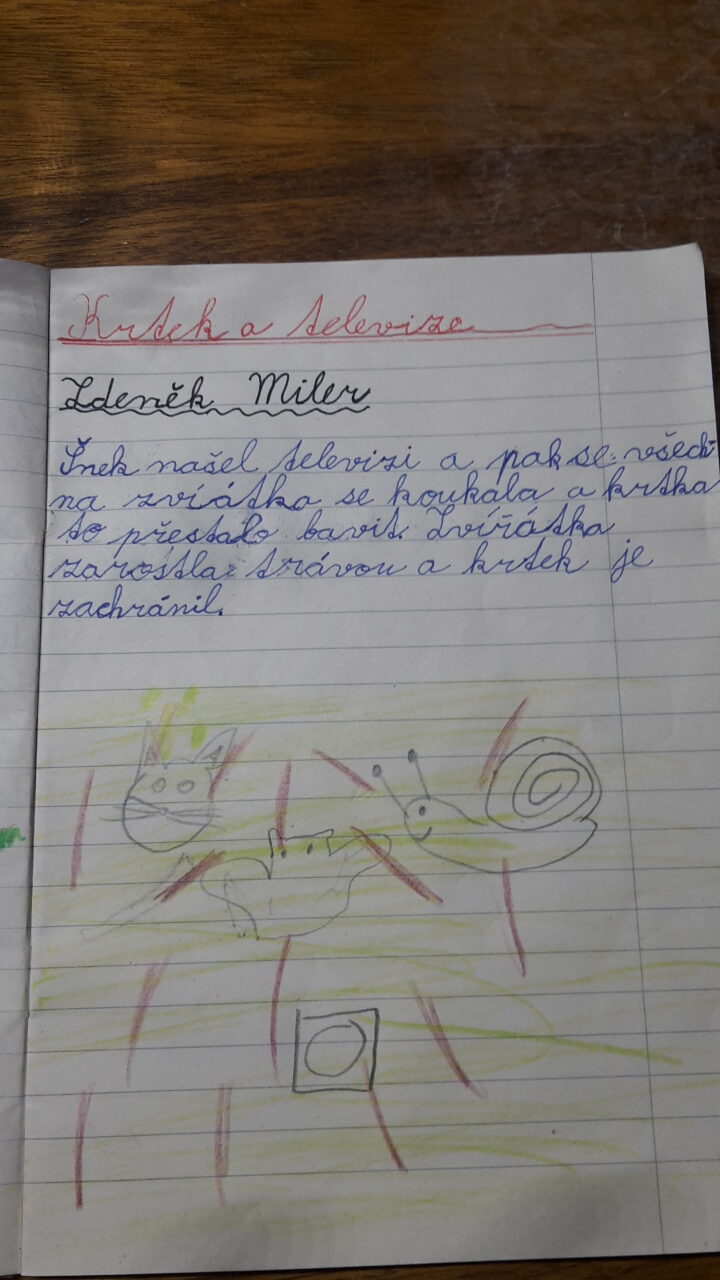 Krtek a televize
Zdeněk Miler
Šnek našel televizi a pak se všech
na zvíátka se koukala a krtka
to přestalo bavit. Zvířátka
zarostla trávou a krtek je
zachránil.